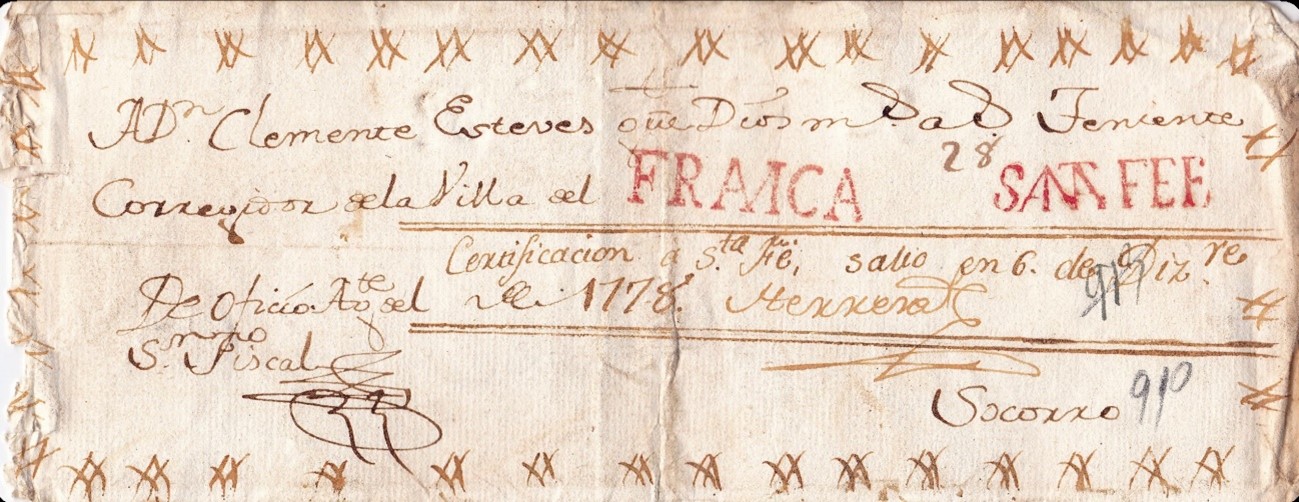 A Dn. Clemente Esteves qūe Dios m.s a.s Teniente
28
Corregidor de la Villa del FRANCA SANTAFEE
Certificacion a S.ta Fé; salio en 6. de Diz.re
De oficio del de 1778. Herrera
S.or Fiscal
Socorro 910